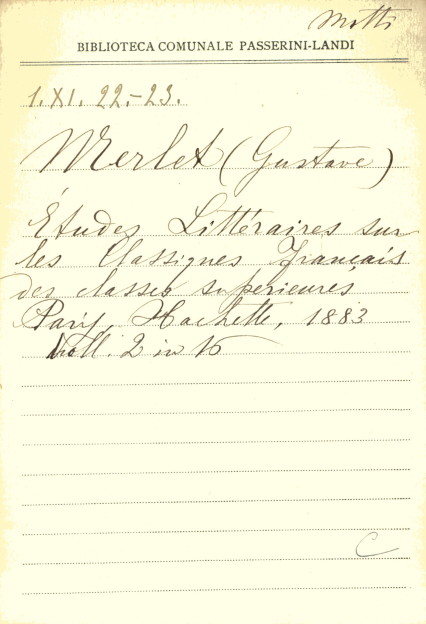 Motti
BIBLIOTECA COMUNALE PASSERINI-LANDI
1. XI. 22.-23.
Merlet (Gustave)
Études Littéraires sur
les Classiques Français
des classes superieures
Paris, Hachette, 1883
Voll. 2 in 16
C